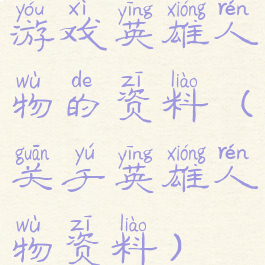 yóu xì yīng xióng rén
游戏英雄人
wù de zī liào
物的资料（
guān yú yīng xióng rén
关于英雄人
wù zī liào
物资料）